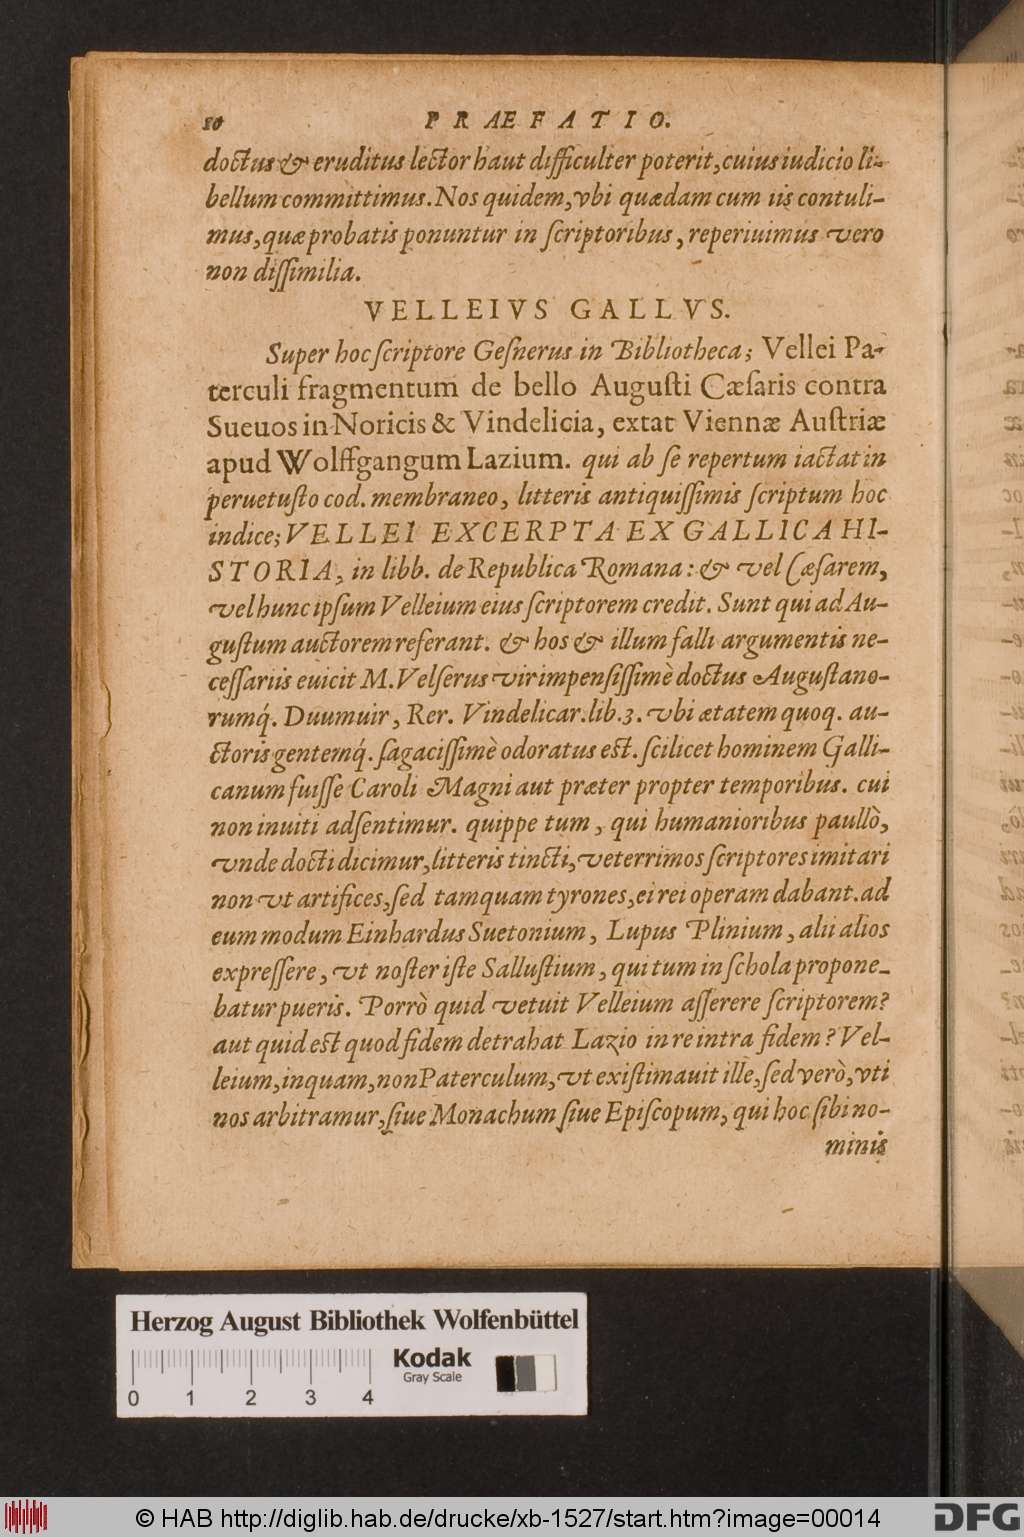 10 PRÆFATIO.
doctus & eruditus lector haut difficulter poterit, cuius iudicio li-
bellum committimus. Nos quidem, vbi quædam cum iis contuli-
mus, quæ probatis ponuntur in ſcriptoribus, reperiuimus vero
non diſſimilia.
VELLEIVS GALLVS.
Super hoc ſcriptore Geſnerus in Bibliotheca; Vellei Pa-
terculi fragmentum de bello Auguſti Cæſaris contra
Sueuos in Noricis & Vindelicia, extat Viennæ Auſtriæ
apud Wolffgangum Lazium. qui ab ſe repertum iactat in
peruetuſto cod. membraneo, litteris antiquiſſimis ſcriptum hoc
indice; VELLEI EXCERPTA EX GALLICA HI-
STORIA, in libb. de Republica Romana: & vel Cæſarem,
vel hunc ipſum Velleium eius ſcriptorem credit. Sunt qui ad Au-
guſtum auctorem referant. & hos & illum falli argumentis ne-
ceſſariis euicit M. Velſerus vir impenſiſſimè doctus Auguſtano-
rumq́. Duumuir, Rer. Vindelicar. lib. 3. vbi ætatem quoq. au-
ctoris gentemq́. ſagaciſſimè odoratus eſt. ſcilicet hominem Galli-
canum fuiſſe Caroli Magni aut præter propter temporibus. cui
non inuiti adſentimur. quippe tum, qui humanioribus paullò,
vnde docti dicimur, litteris tincti, veterrimos ſcriptores imitari
non vt artifices, ſed tamquam tyrones, ei rei operam dabant. ad
eum modum Einhardus Suetonium, Lupus Plinium, alii alios
expreſſere, vt noſter iſte Salluſtium, qui tum in ſchola propone-
batur pueris. Porrò quid vetuit Velleium aſſerere ſcriptorem?
aut quid eſt quod fidem detrahat Lazio in re intra fidem? Vel-
leium, inquam, non Paterculum, vt exiſtimauit ille, ſed verò, vti
nos arbitramur, ſiue Monachum ſiue Epiſcopum, qui hoc ſibi no-
minis
Herzog August Bibliothek Wolfenbüttel
Kodak
Gray Scale
0 1 2 3 4
© HAB http://diglib.hab.de/drucke/xb-1527/start.htm?image=00014
DFG